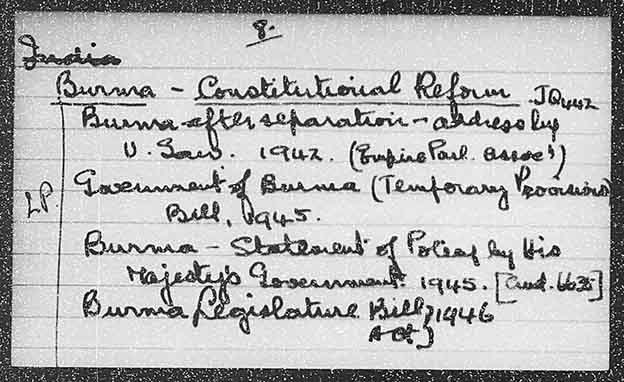 8.
India
Burma - Constitutional Reform JQ442
Burma after separation - address by
U. Saw. 1942. (Empire Parl. Assoc')
Government of Burma (Temporary Provisions)
LP. Bill, 1945.
Burma - Statement of Policy by His
Majesty's Government. 1945. [Cmd. 6635]
Burma Legislature Bill, } 1946
Act }